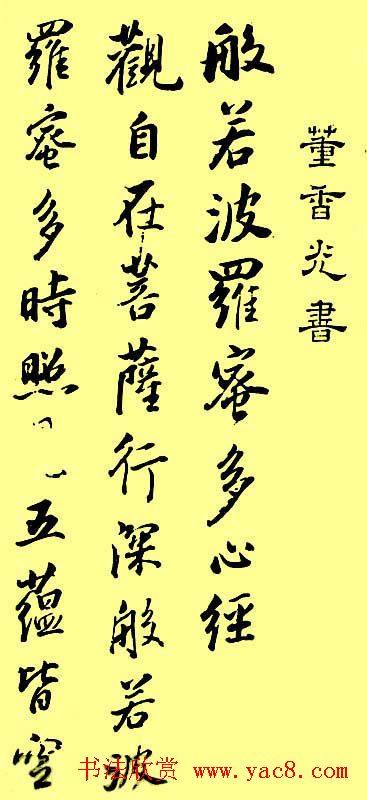 董香光書
般若波羅蜜多心經
觀自在菩薩行深般若波
羅蜜多時照五蘊皆空
书法欣赏 www.yac8.com